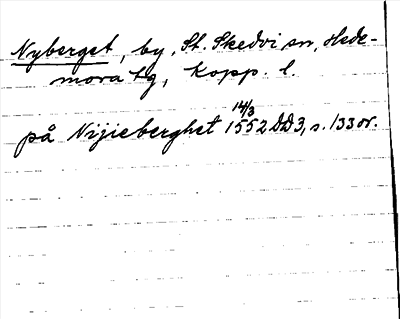 Nyberget, by, St. Skedvi sn, Hede-
mora tg, Kopp. l.
14/3
på Nijieberghet 1552 DD3, s. 133 or.